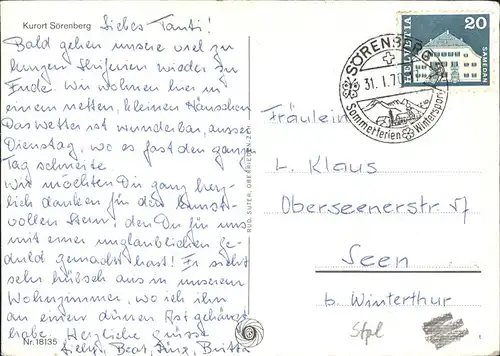 Kurort Sörenberg
Liebes Tanti!
Bald gehen unsere viel zu
kurzen Skiferien wieder zu
Ende. Wir wohnen hier in
einem netten, kleinen Häuschen
Das Wetter ist wunderbar, ausser
Dienstag, wo es fast den ganzen
Tag schneite.
Wir möchten Dir ganz herz-
lich danken für den kunst-
vollen Stern, den Du für uns
mit einer unglaublichen Ge-
duld gemacht hast! Er sieht
sehr hübsch aus in unserem
Wohnzimmer, wo ich ihn
an einem dürren Ast gehängt
habe. Herzliche Grüsse
Beat, Britta
Nr. 18135
RUD. SUTER, OBERRIEDEN-ZCH
HELVETIA
20
SAMEDAN
SÖRENBERG
31.1.70
Sommerferien Wintersport
Fräulein
L. Klaus
Oberseenerstr. 17
Seen
b. Winterthur
Stpl